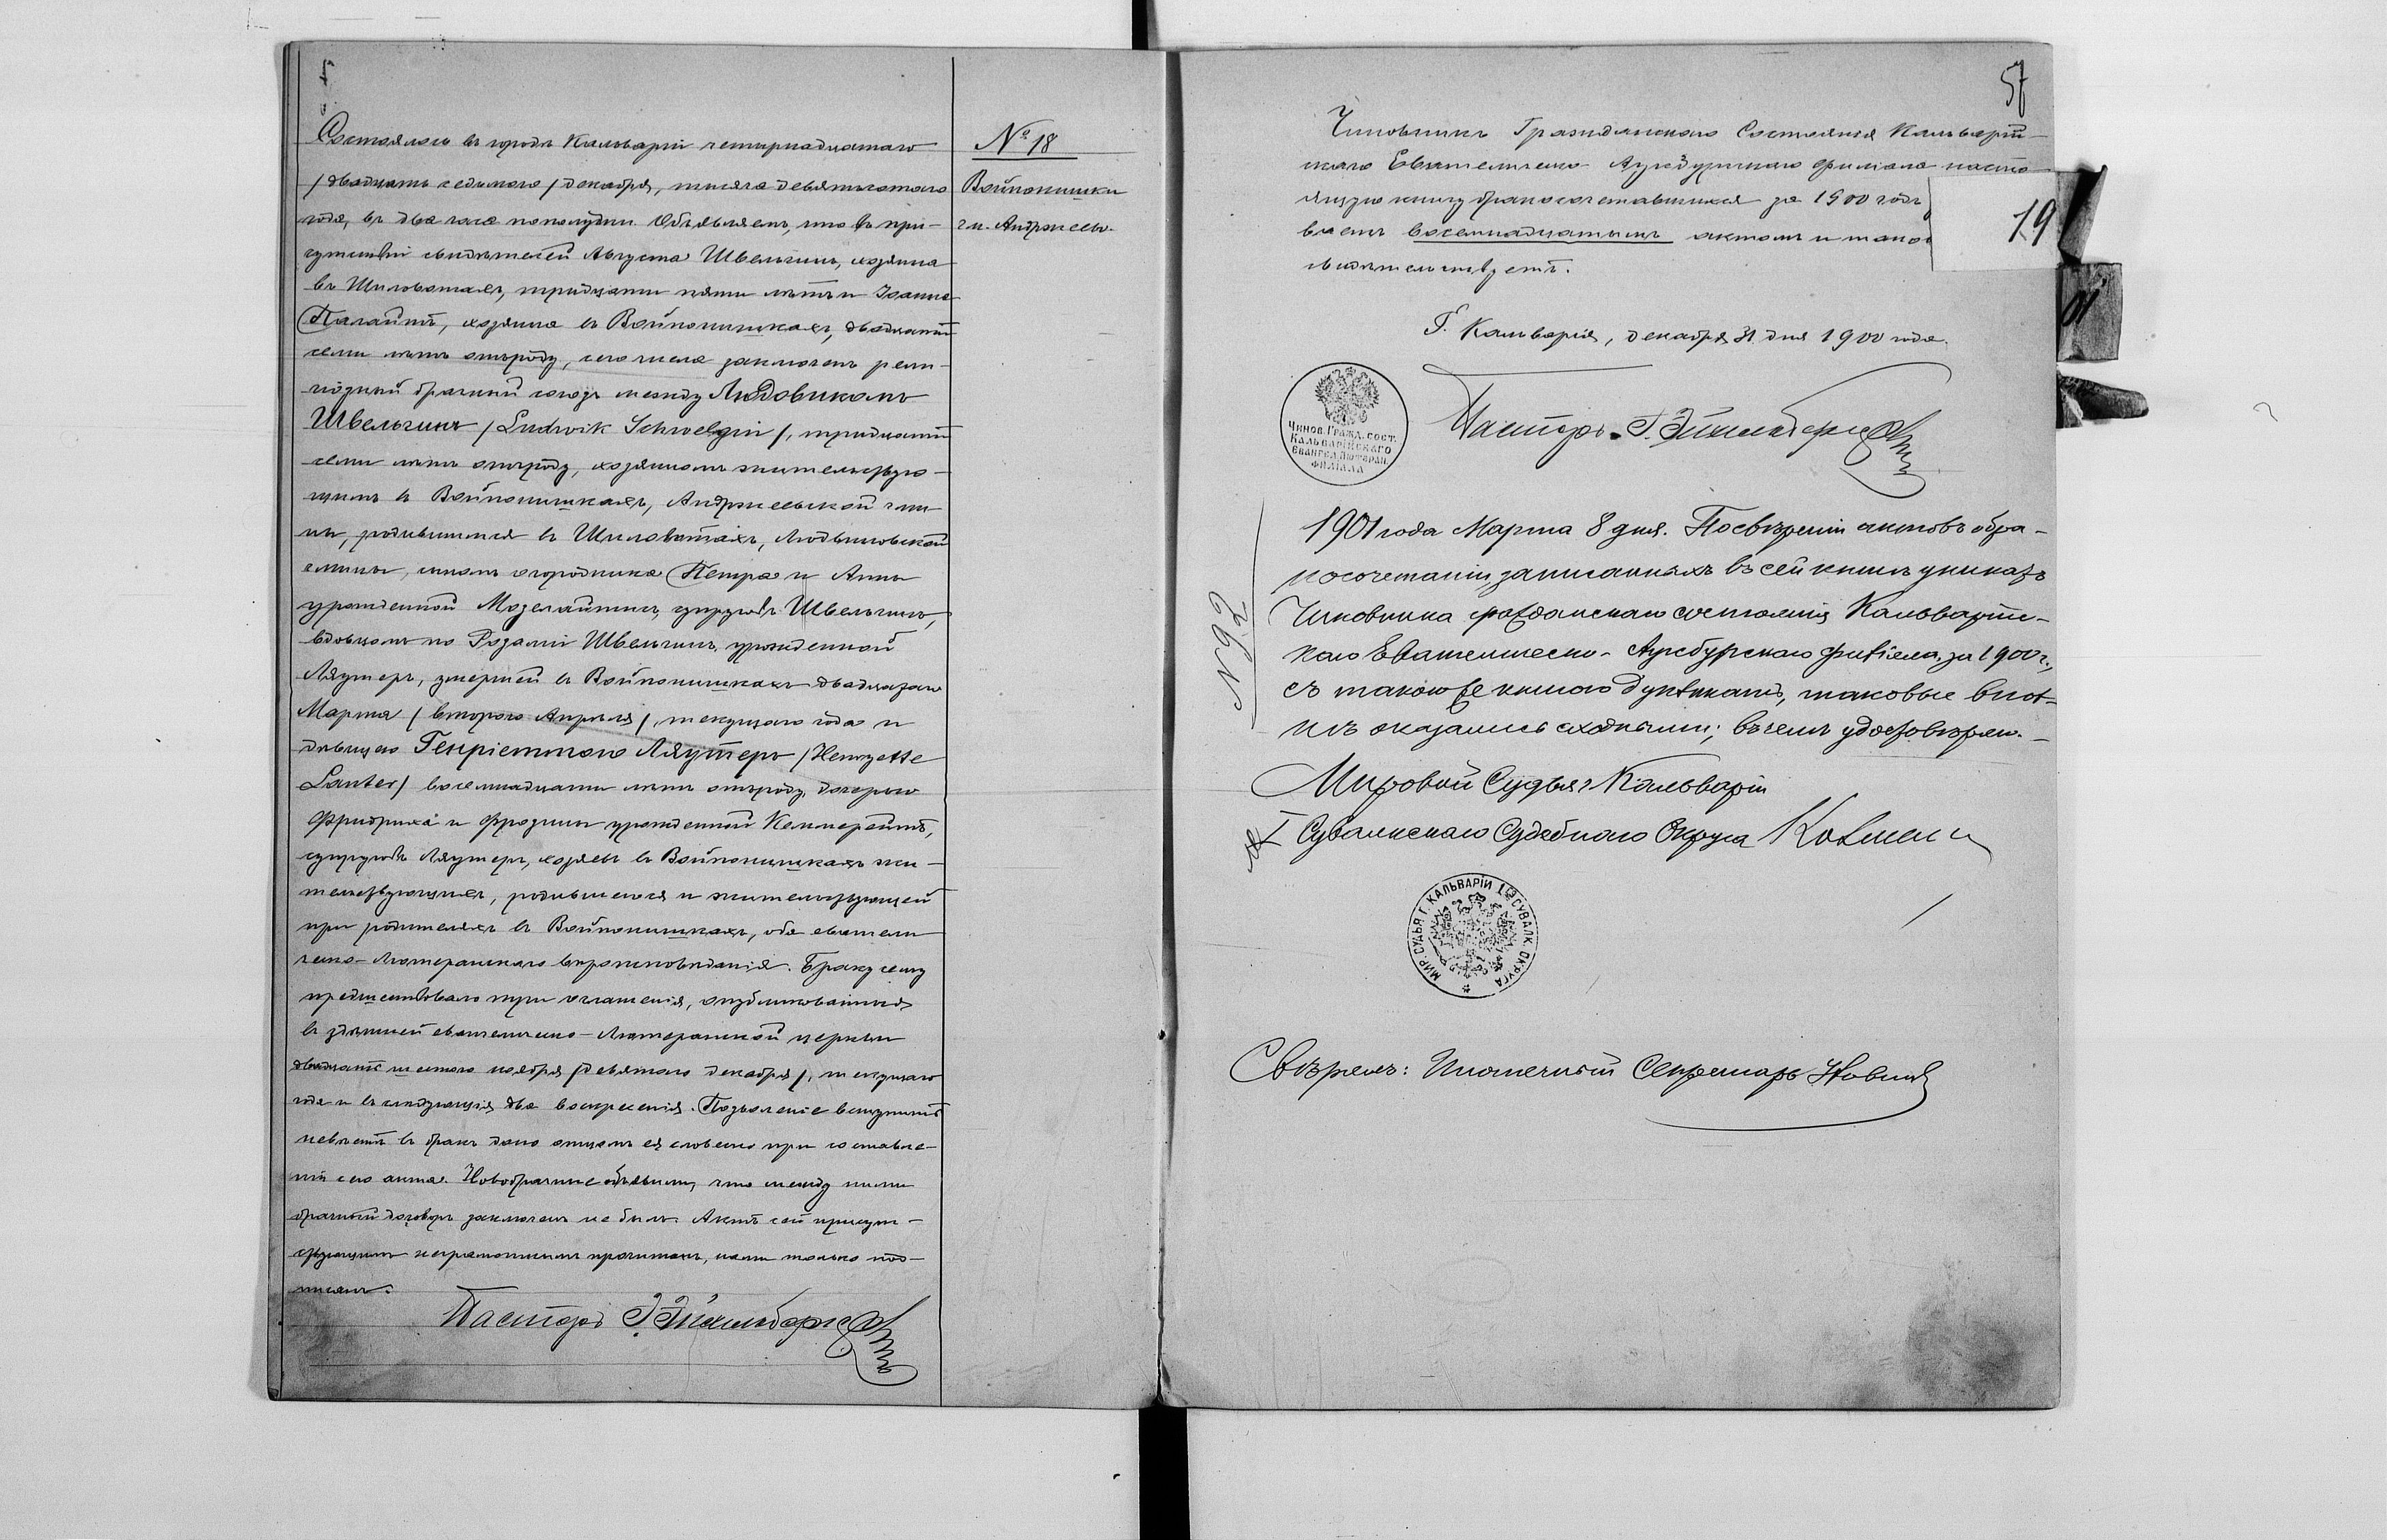 Состоялось въ городѣ Кальваріи четырнадцатаго
/двадцать седьмого/ декабря, тысяча девятьсотаго
года, въ два часа пополудни. Объявляемъ, что въ при-
сутствіи свидѣтелей Августа Швельгинъ, хозяина
въ Шиловотахъ, тридцати пяти лѣтъ и Іоанна
хозяина въ Войпонишкахъ, двадцати
семи лѣтъ отъ роду, сего числа заключенъ рели-
гіозный брачный союзъ между Людовикомъ
Швельгинъ /Ludwik Schwelgin/, тридцати
семи лѣтъ отъ роду, хозяиномъ жительствую-
щимъ въ Войпонишкахъ, Андржеевской гми-
ны, родившимся въ Шиловотахъ, Людвиновской
гмины, сыномъ огородника Петра и Анны
урожденной супруговъ Швельгинъ,
вдовцомъ по Розаліи Швельгинъ, урожденной
Ляутеръ, умершей въ Войпонишкахъ двадцатаго
Марта /второго Апрѣля/, текущаго года и
дѣвицею Генріеттою Ляутеръ /Henryette
Lauter/ восемнадцати лѣтъ отъ роду, дочерью
Фридриха и урожденной
супруговъ Ляутеръ, хозяевъ въ Войпонишкахъ жи-
тельствующихъ, родившеюся и жительствующей
при родителяхъ въ Войпонишкахъ, оба евангели
ческо-Лютеранскаго вѣроисповѣданія. Браку сему
предшествовало три оглашенія, опубликованныя
въ здѣшней евангелическо-Лютеранской церкви
двадцать шестого ноября /девятого декабря/, текущаго
года и въ слѣдующія два воскресенія. Позволеніе вступить
невѣстѣ въ бракъ дано отцомъ ея словесно при составле-
ніи сего акта. Новобрачные объявили, что между ними
брачный договоръ заключенъ не былъ. Актъ сей присут-
ствующимъ неграмотнымъ прочитанъ, нами только под-
писанъ.
Пасторъ
№ 18
Войпонишки
гм. Андржеев.
57
Чиновникъ Гражданскаго Состоянія Кальварій-
скаго Евангелическо Аугсбургскаго филіала насто
ящую книгу бракосочетавшихся за 1900 годъ
восемнадцатымъ актомъ и
свидѣтельствуетъ.
19
01
Г. Кальварія, декабря 31 дня 1900 года.
Чинов. Гражд. сост.
Кальварійскаго
Евангел. Лютеран.
филіала
Пасторъ
1901 года Марта 8 дня. По свѣреніи актовъ о бра-
косочетаніи, записанныхъ въ сей книгѣ уникатѣ
Чиновника гражданскаго состоянія Кальварійс-
каго Евангелическо-Аугсбургскаго филіала за 1900 г.,
съ такою же книгою дупликатъ, таковые
оказались сходными; въ чемъ удостовѣряю.
№ 92
Мировой Судья г. Кальваріи
I Сувалкскаго Судебнаго Округа
МИР. СУДЬЯ Г. КАЛЬВАРІИ 1 СУВАЛК. ОКРУГА
Свѣрялъ: Секретарь